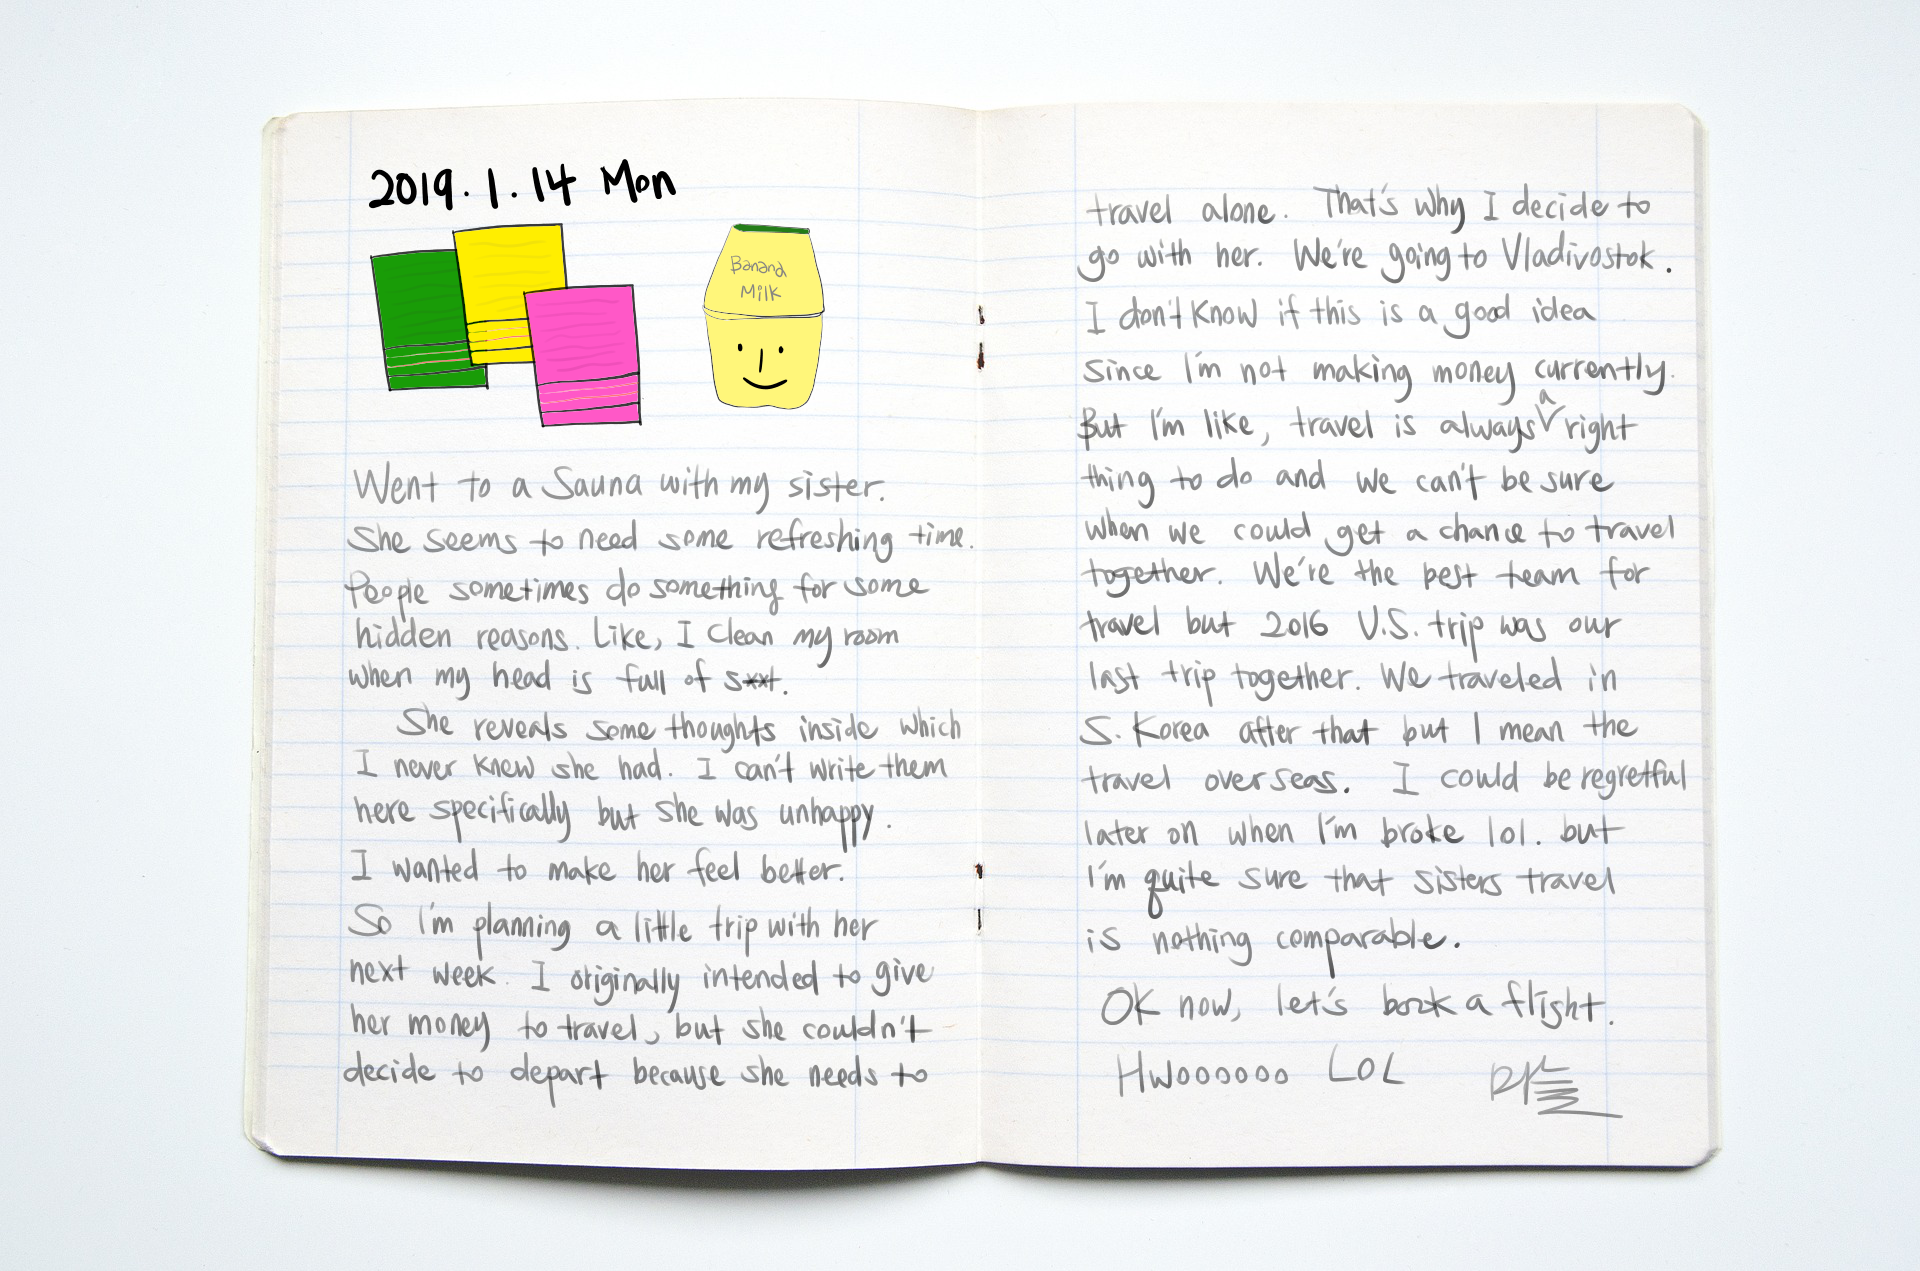 2019.1.14 Mon
Banana
Milk
Went to a Sauna with my sister.
She seems to need some refreshing time.
People sometimes do something for some
hidden reasons. Like, I clean my room
when my head is full of s**t.
She reveals some thoughts inside which
I never knew she had. I can't write them
here specifically but she was unhappy.
I wanted to make her feel better.
So I'm planning a little trip with her
next week. I originally intended to give
her money to travel, but she couldn't
decide to depart because she needs to
travel alone. That's why I decide to
go with her. We're going to Vladivostok.
I don't know if this is a good idea
since I'm not making money currently.
But I'm like, travel is always a right
thing to do and we can't be sure
when we could get a chance to travel
together. We're the best team for
travel but 2016 U.S. trip was our
last trip together. We traveled in
S. Korea after that but I mean the
travel overseas. I could be regretful
later on when I'm broke lol. but
I'm quite sure that sisters travel
is nothing comparable.
OK now, let's book a flight.
Hwoooooo LOL